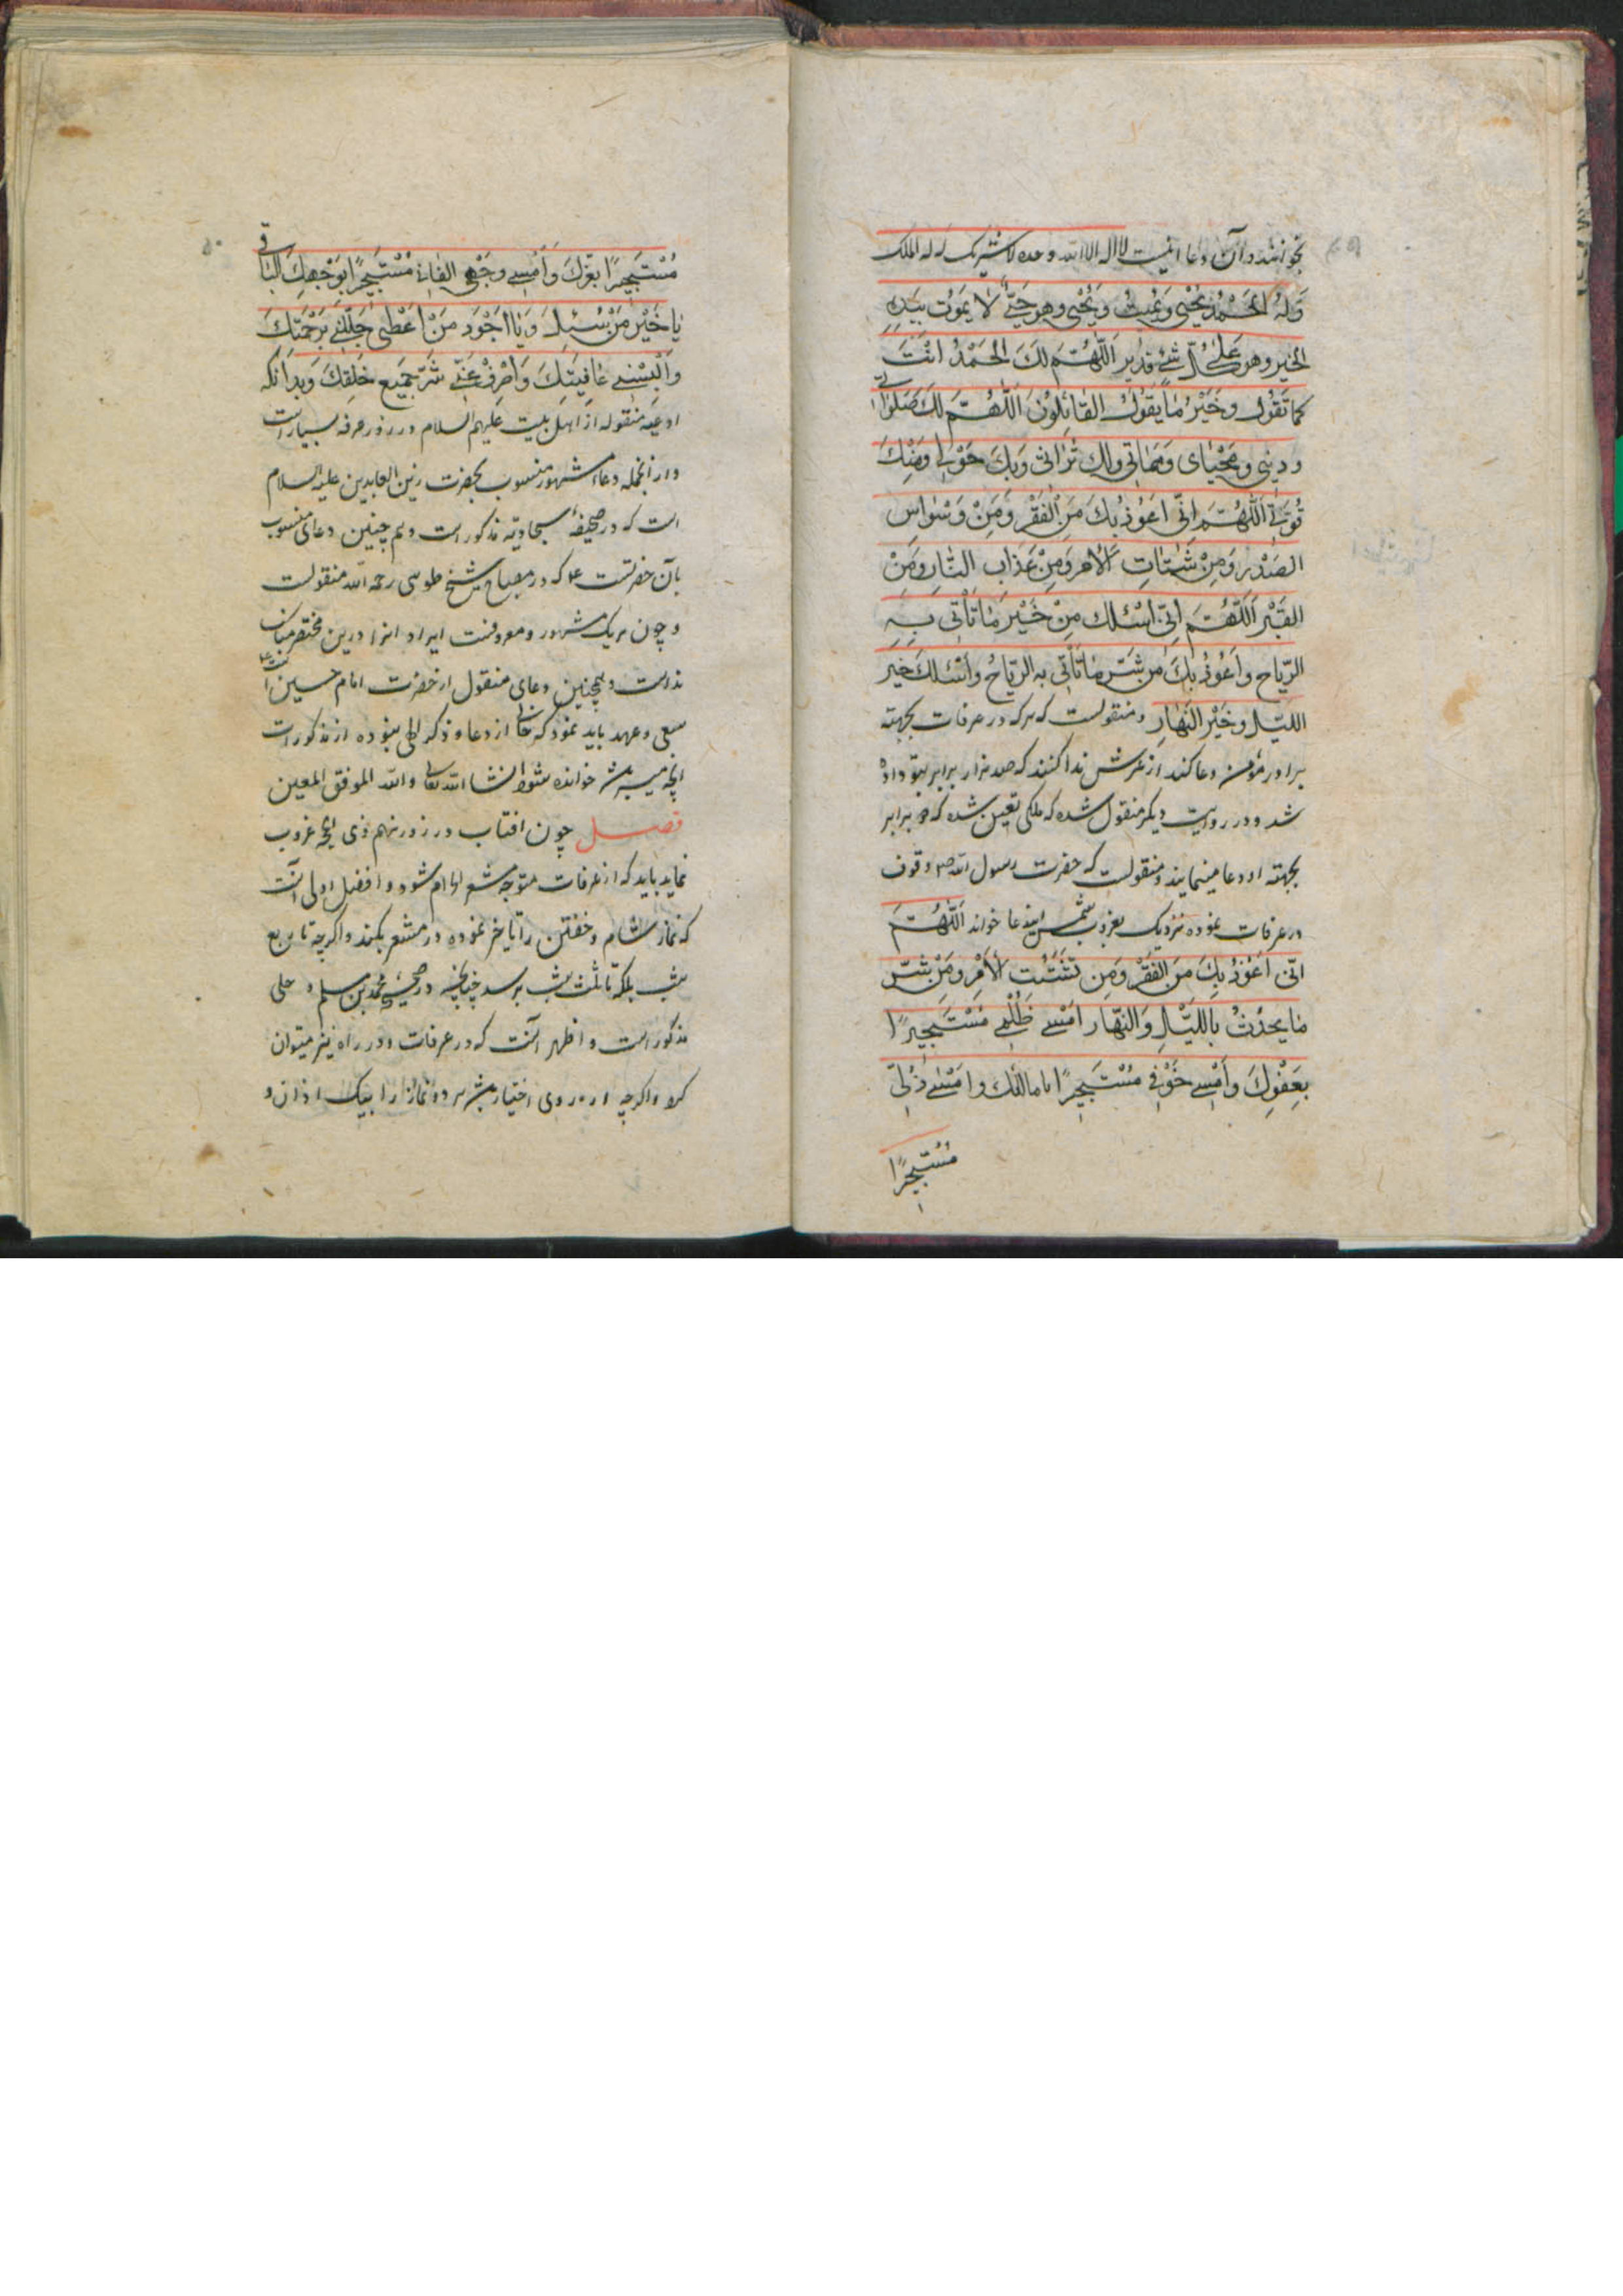 بخوانند و آن دعا اینست لا اله الا الله وحده لا شریک له له الملک
وَلَهُ الحَمْدُ یُحْیی وَیُمیتُ وَیُمیتُ وَیُحْیی وهو حَیٌّ لا یَمُوت بِیَدِهِ
الخیر وهو عَلی کُلِّ شَیْءٍ قدیر اَللّهُمَّ لَکَ الحَمْدُ اَنْتَ
کما تَقُول وخَیْرُ ما یَقُولُ القائِلُونَ اَللّهُمَّ لَکَ صَلواتی
ودینی ومَحْیایَ ومَماتی ولک تُراثی وَبِکَ حَوْلی ومِنْکَ
قُوَّتی اَللّهُمَّ اِنّی اَعُوذُ بِکَ مِنَ الفَقْرِ ومِنْ وَسْواسِ
الصَّدْرِ ومِنْ شَتاتِ الأمر ومِنْ عَذابِ النّارِ ومِنْ
القَبْرِ اَللّهُمَّ اِنّی اَسْئَلُک مِنْ خَیْرِ ما تَأتی بِهِ
الرّیاح واَعُوذُ بِکَ من شَرِّ ما تَأتی به الرّیاحُ واَسْئَلُکَ خَیْرَ
اللَّیْلِ وخَیْرَ النَّهارِ و منقولست که هرکه در عرفات بجهته
برادر مؤمن دعا کند از عرش ندا کنند که صد هزار برابر بتو داده
شد و در روایت دیگر منقول شده که ملکی تعیین شده که برابر
بجهته او دعا مینمایند و منقولست که حضرت رسول الله ص وقوف
در عرفات نموده نزدیک بغروب شمس ایندعا خواند اَللّهُمَّ
اِنّی اَعُوذُ بِکَ مِنَ الفَقْرِ ومِن تَشَتُّتِ الأمْرِ ومِنْ شَرِّ
ما یحدُثُ بِاللَّیْلِ وَالنَّهارِ اَمْسی ظُلْمی مُسْتَجیرًا
بِعَفْوِکَ واَمْسی خَوْفی مُسْتَجیرًا بامانک واَمْسی ذُلّی
مُسْتَجیرًا
۵۰
مُسْتَجیرًا بِعِزِّکَ وَاَمْسی وَجْهی الفانی مُسْتَجیرًا بِوَجْهِکَ الباقی
یا خَیْرَ مَنْ سُئِلَ وَیا اَجْوَدَ مَنْ اَعْطی جَلِّلْنی بِرَحْمَتِکَ
وَاَلْبِسْنی عافِیَتَکَ وَاصْرِفْ عَنّی شَرَّ جَمیعِ خَلْقِکَ وبدانکه
ادعیه منقوله از اهل بیت علیهم السلام در روز عرفه بسیار است
و از آنجمله دعاء مشهور منسوب بحضرت زین العابدین علیه السلام
است که در صحیفهٔ سجادیّه مذکور است و هم چنین دعای منسوب
بآن حضرتست که در مصباح شیخ طوسی رحمه الله منقولست
و چون هریک مشهور و معروفست ایراد آنها درین مختصر مناسب
نداست و همچنین دعای منقول از حضرت امام حسین
سعی و جهد باید نمود که خالی از دعا و ذکر الهی نبوده از مذکورات
آنچه میسر باشد خوانده شود انشا الله تعالی والله الموفق المعین
فصل چون افتاب در روز نهم ذی الحجه غروب
نماید باید که از عرفات متوجه مشعر الحرام شود و افضل و اولی آنست
که نماز شام و خفتن را تاخیر نموده در مشعر بکند و اگرچه تا ربع
شب بلکه تا ثلث شب برسد چنانچه در صحیحهٔ محمد بن مسلم و حلبی
مذکور است و اظهر آنست که در عرفات و در راه نیز میتوان
کرد و اگرچه از روی اختیار باشد و هر دو نماز را بیک اذان و